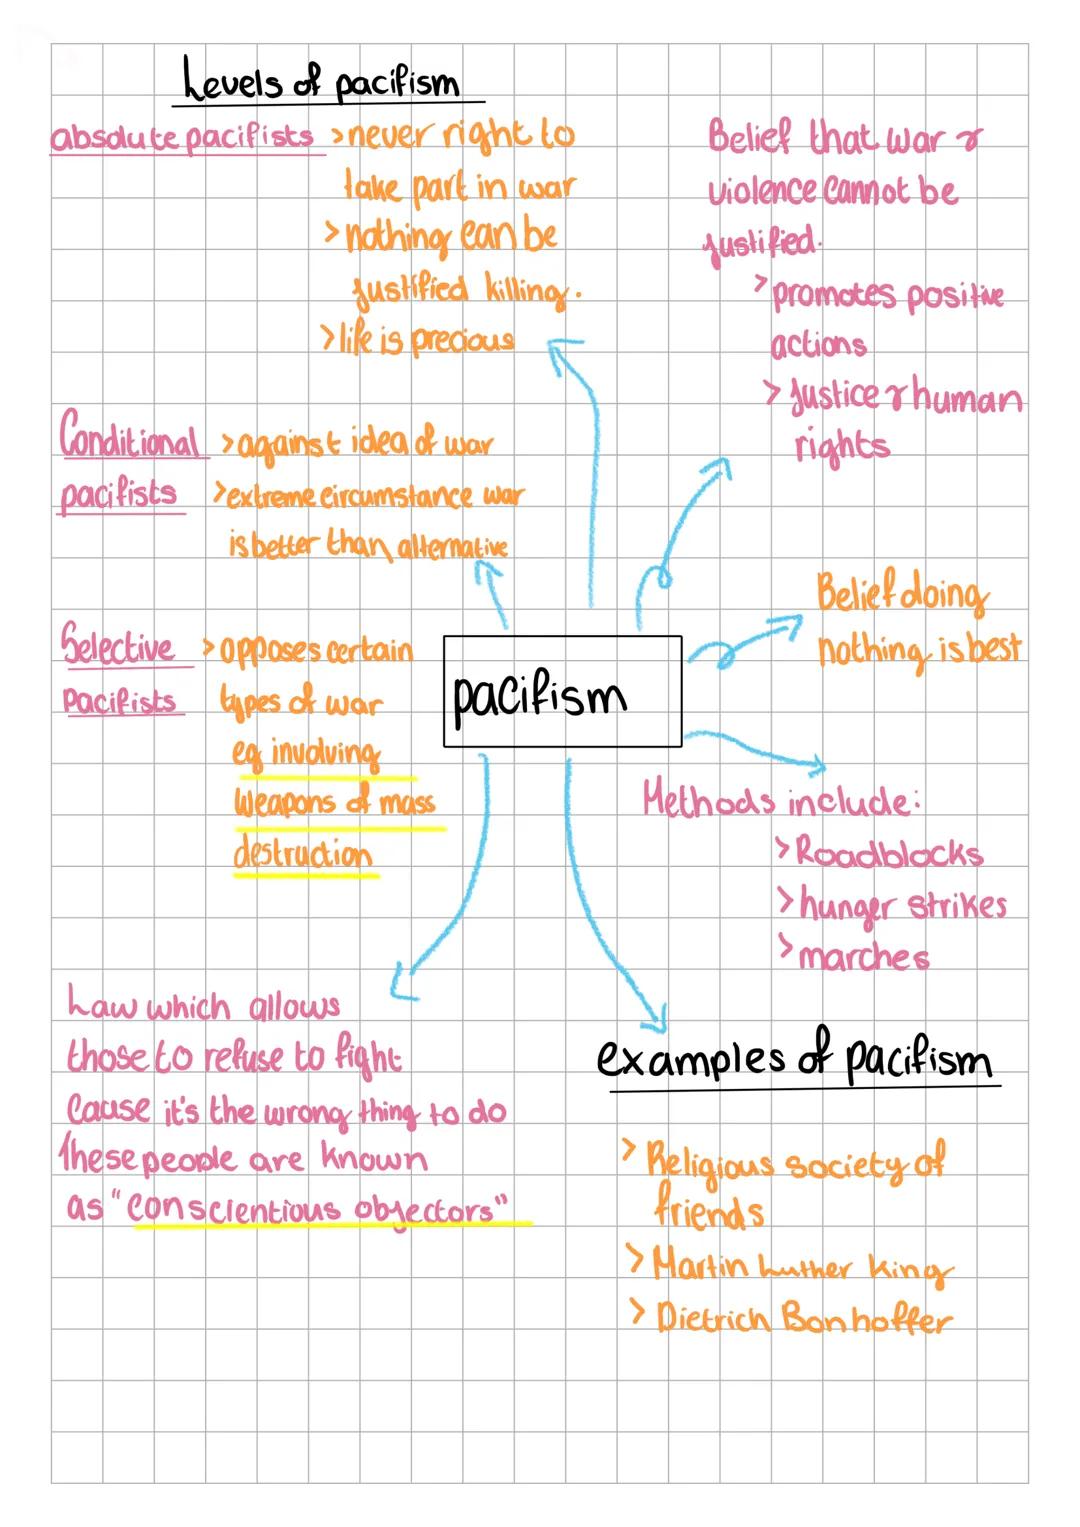 Levels of pacifism
absolute pacifists >never right to
take part in war
>nothing can be
justified killing.
>life is precious
Conditional >against idea of war
pacifists >extreme circumstance war
is better than alternative
Selective >opposes certain
Pacifists types of war
eg involving
weapons of mass
destruction
Belief that war &
violence cannot be
justified.
>promotes positive
actions
>justice & human
rights
Belief doing
nothing is best
pacifism
Methods include:
>Roadblocks
>hunger strikes
>marches
Law which allows
those to refuse to fight
cause it's the wrong thing to do
These people are known
as "conscientious objectors"
examples of pacifism
> Religious society of
friends
> Martin Luther King
> Dietrich Bonhoffer